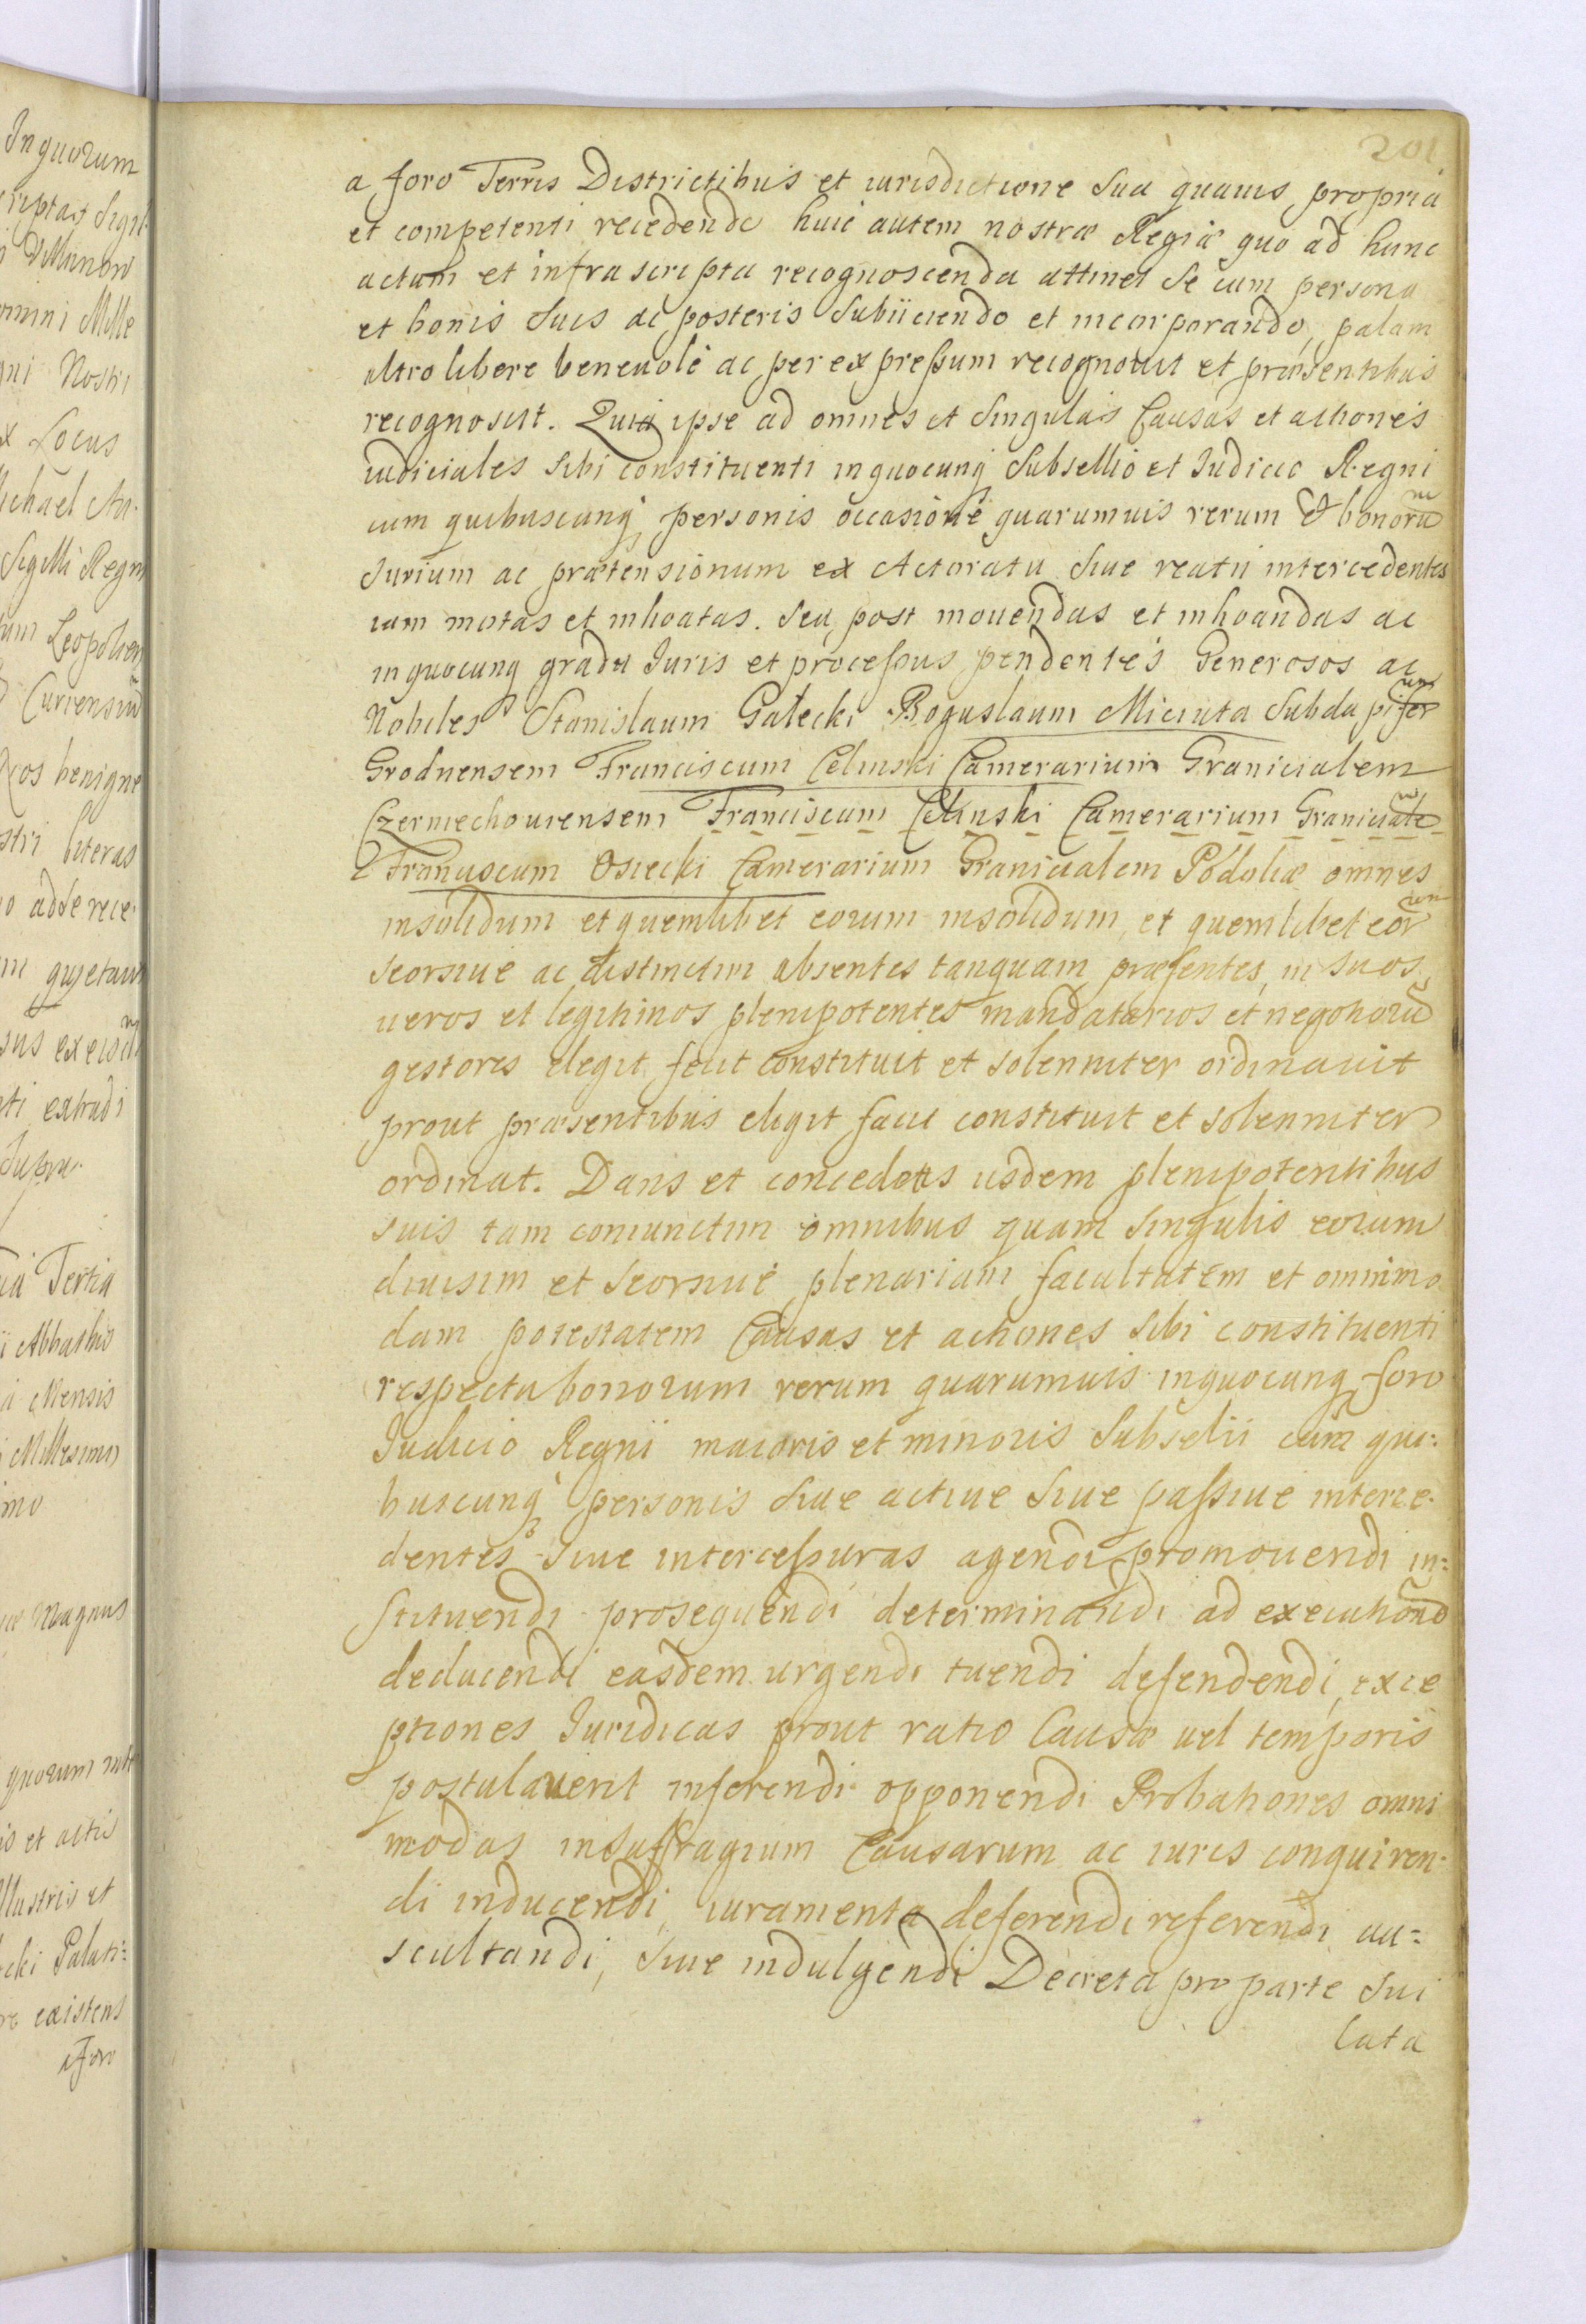 201
a foro Terris Districtibus et iurisdictione sua quauis propria
et competenti recedendo huic autem nostræ Regiæ quo ad hunc
actum et infrascripta recognoscenda attinet se cum persona
et bonis suis ac posteris subiiciendo et incorporando, palam
ultro libere beneuole ac per expressum recognouit et præsentibus
recognoscit. Quia ipse ad omnes et singulas Causas et actiones
iudiciales sibi constituenti inquocunq subsellio et Iudicio Regni
cum quibuscunq personis occasione quarumuis rerum & bonorũ
Iurium ac prætensionum ex Actoratu siue reatu intercedentes
iam motas et inhoatas. seu post mouendas et inhoandas ac
inquocunq gradu Iuris et processus pendentes Generosos ac
Nobiles Stanislaum Gałecki Bogusłaum Miciuta Subdapiferum
Grodnensem Franciscum Celinski Camerarium Granicialem
Czerniechouiensem Franciscum Celinski Camerarium Graniciale
Franciscum Osiecki Camerarium Granicialem Podoliæ omnes
insolidum et quemlibet eorum insolidum, et quemlibet eorum
seorsiue ac distinctim absentes tanquam præsentes, in suos
ueros et legitimos plenipotentes mandatarios et negotiorũ
gestores elegit fecit constituit et solenniter ordinauit
prout præsentibus eligit facit constituit et solenniter
ordinat. Dans et concedens iisdem plenipotentibus
suis tam coniunctim omnibus quam singulis eorum
diuisim et seorsiue plenariam facultatem et omnimo
dam potestatem Causas et actiones sibi constituenti
respectu bonorum rerum quarumuis inquocunq foro
Iudicio Regni maioris et minoris Subselii cum qui:
buscunq personis siue actiue siue passiue interce-
dentes siue intercessuras agendi promouendi in:
stituendi prosequendi determinandi ad executionẽ
deducendi easdem urgendi tuendi defendendi, exce
ptiones Iuridicas prout ratio Causæ uel temporis
postulauerit inferendi opponendi Probationes omni
modas insuffragium Causarum ac iuris conquiren-
di inducendi, iuramenta deferendi referendi au=
scultandi, siue indulgendi Decreta pro parte sui
lata